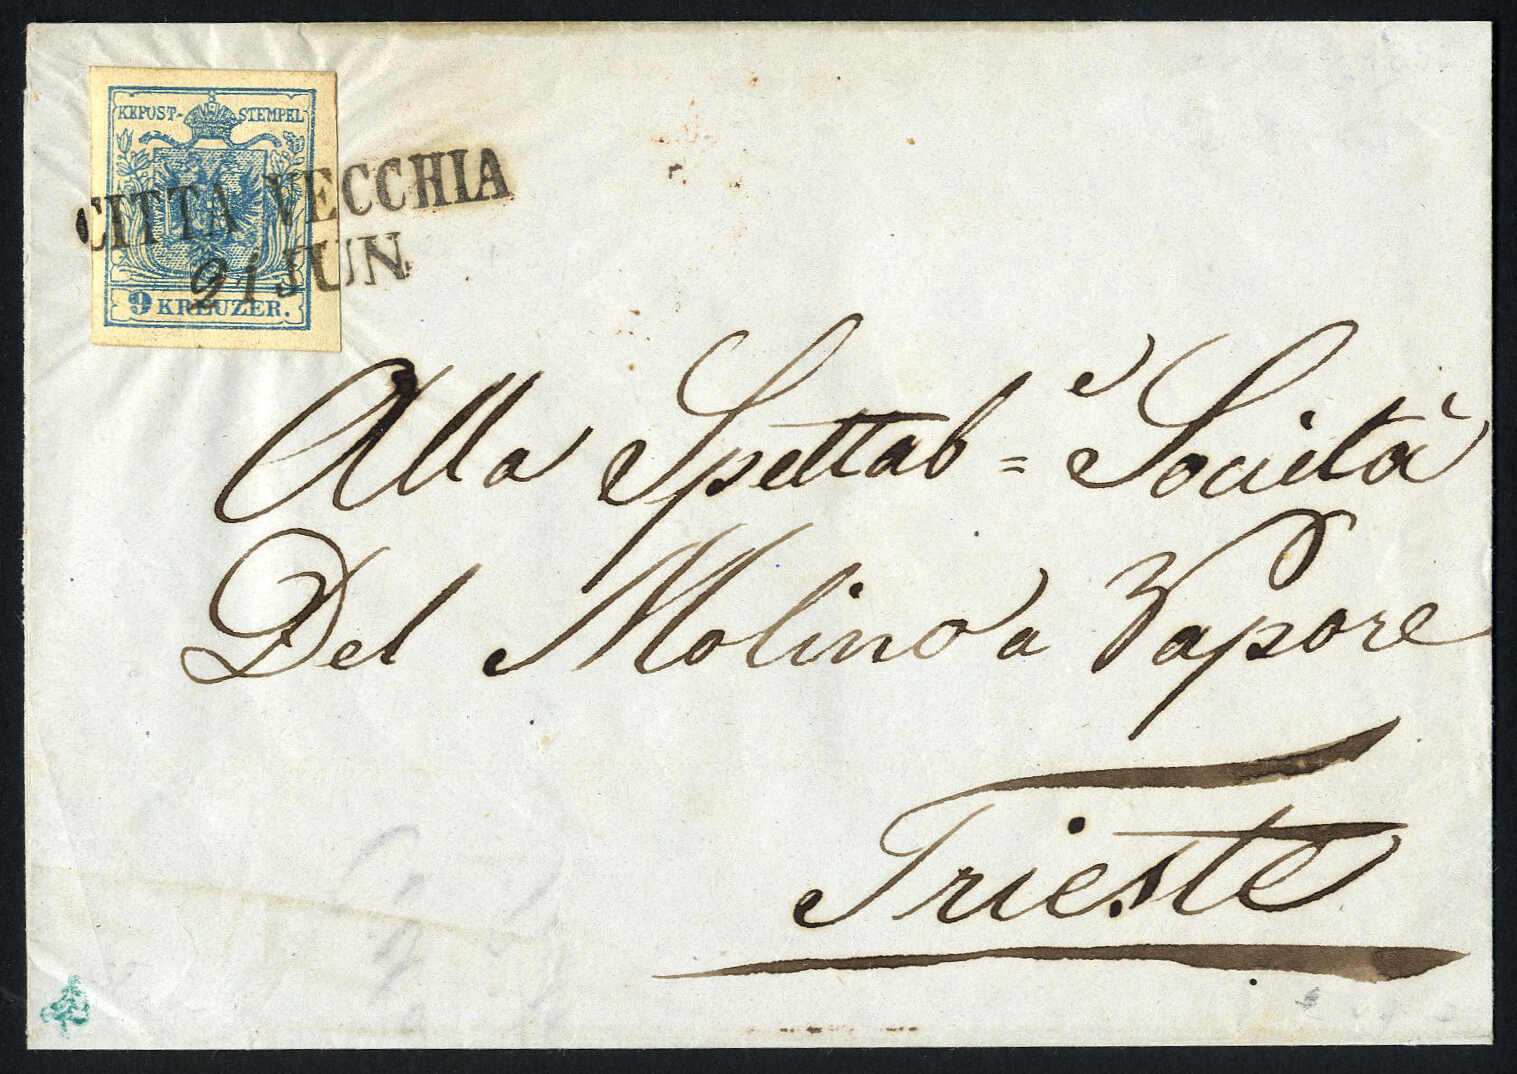 KKPOST-STEMPEL
9 KREUZER.
CITTA VECCHIA
21 JUN
Alla Spettab=e Società
Del Molino a Vapore
Trieste